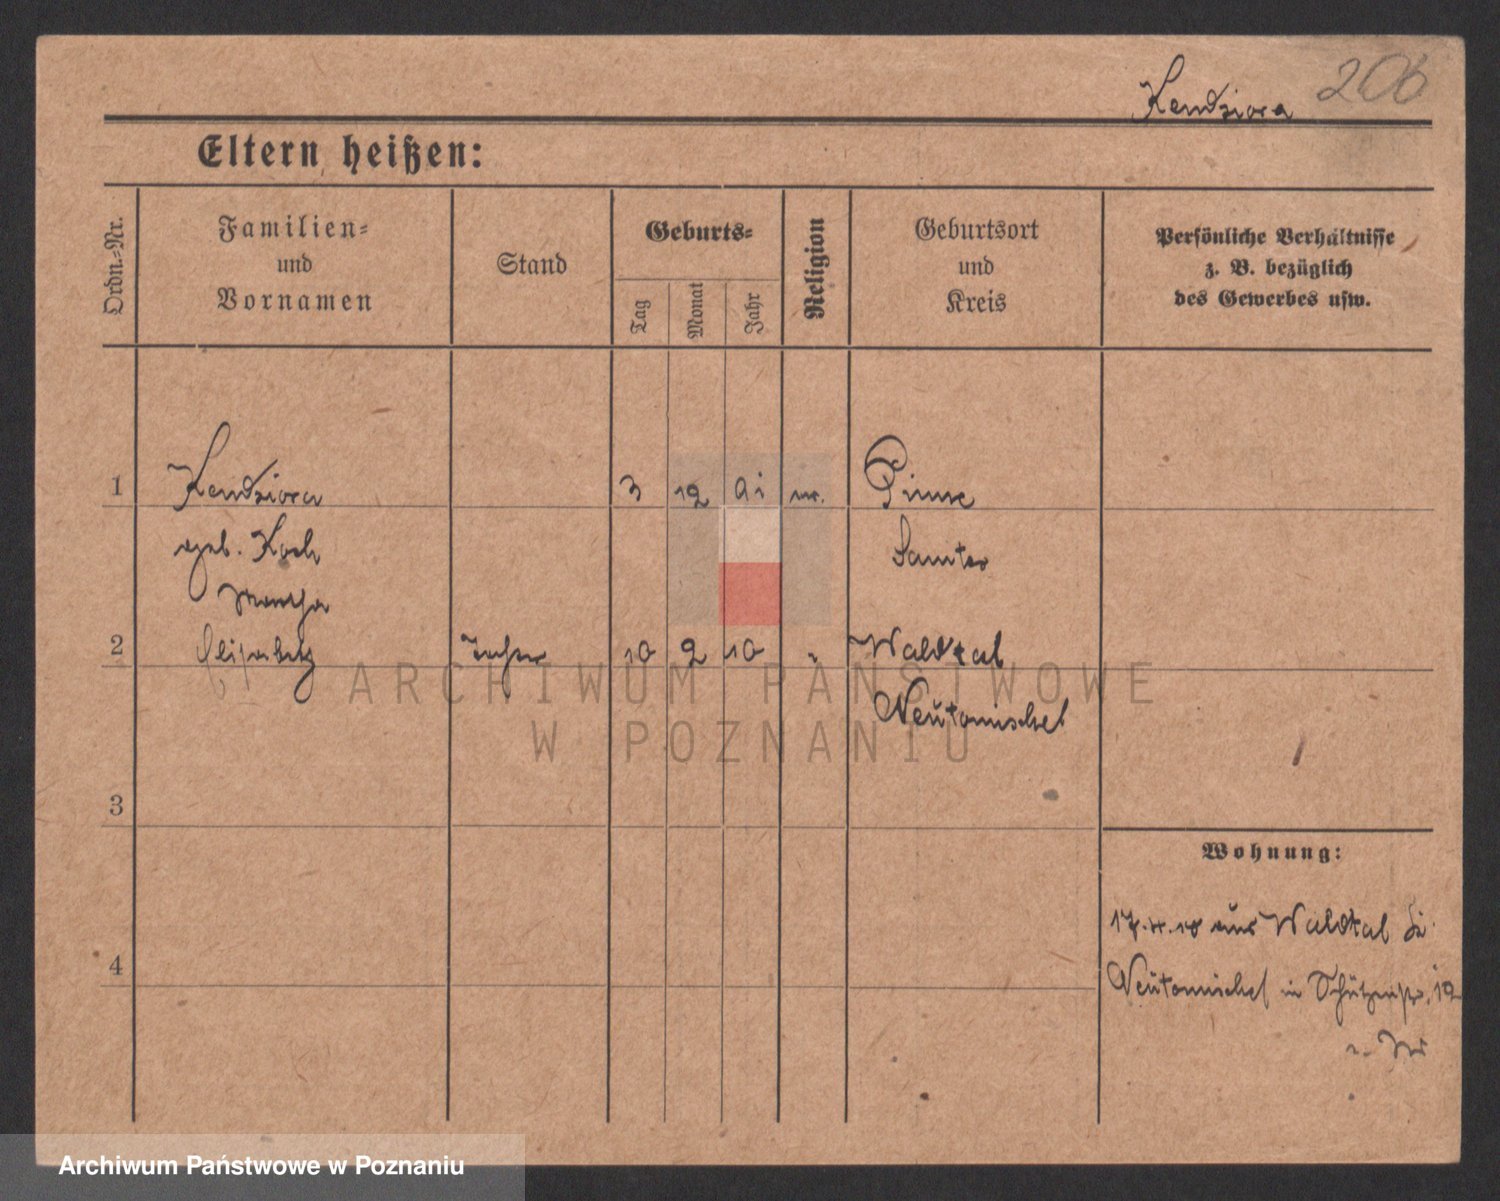 Kendziora 206
Eltern heißen:
Ordn.-Nr.
Familien-
und
Vornamen
Stand
Geburts-
Tag
Monat
Jahr
Religion
Geburtsort
und
Kreis
Persönliche Verhältnisse
z. B. bezüglich
des Gewerbes usw.
1 Kendziora 3 12 Pinne
geb. Koch Samter
Martha
2 Elisabeth Tochter 10 2 10 " Waldtal
Neutomischel
ARCHIWUM PAŃSTWOWE
W POZNANIU
3
Wohnung:
aus Waldtal
4
Neutomischel in Schützenstr. 12
Archiwum Państwowe w Poznaniu